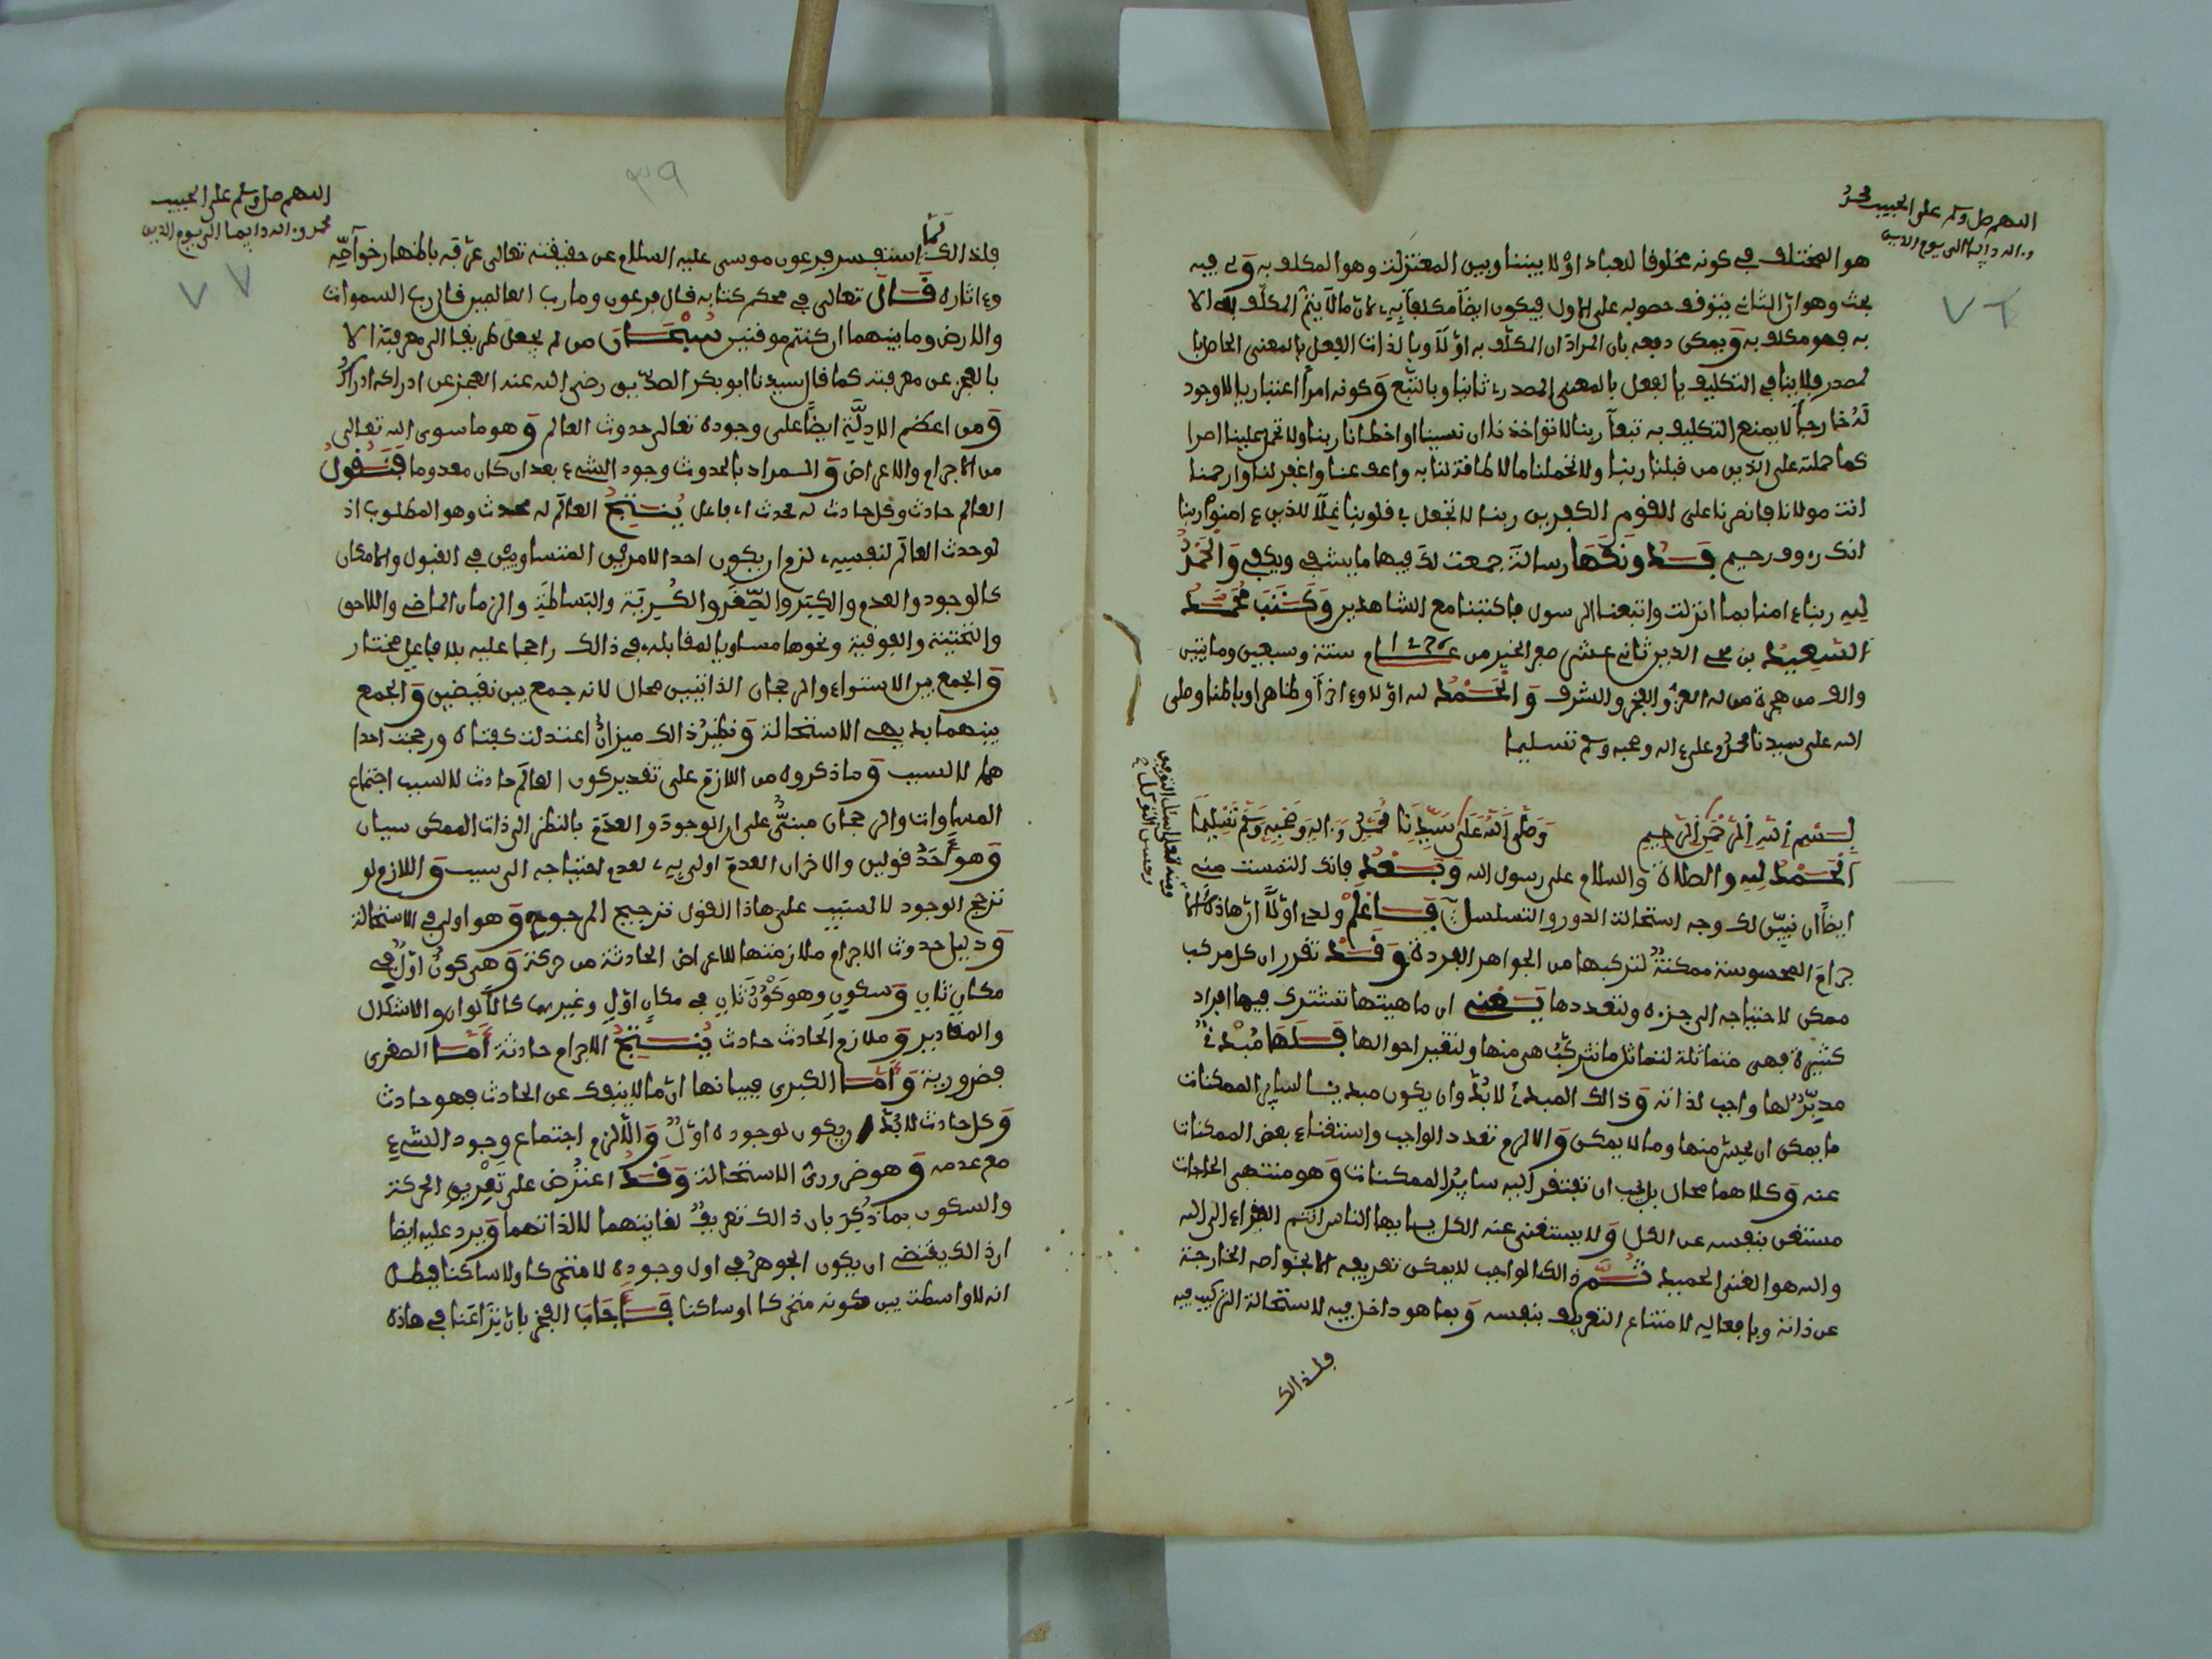 اللهم صل وسلم على الحبيب محمد
وءاله دايما الى يوم الدين
٧٦
هو المختلف في كونه مخلوقا للعباد اوْ لا بيننا وبين المعتزلة وهو المكلف به وَفي فيه
بحث وهو انّ الثاني يتوقف حصوله على الاول فيكون ايضًا مكلفاً به لانّ مالا يتمّ المكلّف به الا
به فهو مكلف به وَيمكن دفعه بان المرادَ ان المكلّف به اوّلاً وبالذات الفعل بالمعنى الحاصل با
لمصدر فلا ينافي التكليف بالفعل بالمعنى المصدري ثانيا وبالتّبع وَكونه امرًا اعتباريا لا وجود
لَهُ خارجاً لا يمنع التكليف به تبعاً ربنا لا تواخذنا ان نسينا او اخطانا ربنا ولا تحمل علينا اصرا
كما حملته على الذين من قبلنا ربنا ولا تحملنا ما لا طاقة لنا به واعف عنا واغفر لنا وارحمنا
انت مولانا فانصرنا على القوم الكفرين ربنا لا تجعل في قلوبنا غِلّاً للذين ءامنوا ربنا
انك رءوف رحيم فَدُونَكَهَا رسالةً جمعت لك فيها ما يشفي ويكفي وَالحَمْدُ
لِلهِ ربنا ءامنا بما انزلت واتبعنا الرسول فاكتبنا مع الشاهدين وَكَتَبَ مُحَمَّد
السَّعِيد بن محي الدين ثاني عشر صفر الخير من عام ١٢٧٦ ستة وسبعين ومايتين
والف من هجرة من له العزّ والفخر والشرف وَالحَمْدُ لله اوّلا وءاخراً وظاهرا وباطنا وصلى
الله على سيدنا محمد وعلى ءاله وصحبه وسلم تسليما
بِسْمِ اللهِ الرَّحْمٰنِ الرَّحِيمِ وَصَلَّى اللهُ عَلَى سَيِّدِنَا مُحَمَّدٍ وَءَالِهِ وَصَحْبِهِ وَسَلَّمَ تَسْلِيمًا
اَلْحَمْدُ لِلهِ والصلاة والسلام على رسول الله وَبَعْد فانك التمست منى
ايضًا ان نبيّن لك وجه استحالة الدور والتسلسل فَاعْلَمْ ولدى اوّلاً انّ هاذه الا
جرامَ المحسوسة ممكنةٌ لتركبها من الجواهر الفردة وَقَدْ تقرر ان كل مركب
ممكن لاحتياجه الى جزءه ولتعددها يَعْنِي ان ماهيتها تشترك فيها افراد
كثيرة فهى متماثلة لتماثل ما تتركّبُ هى منها ولتغير احوالها فَلَهَا مُبْدِئٌ
مدبّرٌ لها واجب لذاته وَذالك المبدئُ لا بُدَّ وان يكون مبديا لساير الممكنات
ما يمكن ان يحسّ منها وما لا يمكن وَالا لزم تعدد الواجب واستغناء بعض الممكنات
عنه وَكلاهما محال بل يجب ان تفتقر اليه سايرُ الممكنات وَهو منتهى الحاجات
مستغن بنفسه عن الكل وَلا يستغنى عنه الكل يا ايها الناس انتم الفقراء الى الله
والله هو الغنى الحميد ثُمَّ ذالك الواجب لا يمكن تعريفه الا بخواصه الخارجة
عن ذاته وبافعاله لامتناع التعريف بنفسه وَبما هو داخل فيه لاستحالة التركيب فيه
فلذالك
اللهم صل وسلم على الحبيب
محمد وءاله دايما الى يوم الدين
٧٧
٣٩
فلذالك لَمَّا استفسر فرعون موسى عليه السلام عن حقيقته تعالى عرّفه باظهار خواصّه
وءاثاره قَالَ تعالى في محكم كتابه قال فرعون وما رب العالمين قال رب السموات
والارض وما بينهما ان كنتم موقنين سُبْحَانَ من لم يجعل طريقا الى معرفته الا
بالعجز عن معرفته كما قال سيدنا ابو بكر الصدّيق رضي الله عنه العجز عن ادراكه ادراكٌ
وَمن اعظم الادلَّةِ ايضًا على وجوده تعالى حدوث العالم وَهو ما سوى الله تعالى
من الاجرام والاعراض وَالمراد بالحدوث وجود الشيء بعد ان كان معدوما فَنَقُولُ
العالم حادث وكل حادث له محدث اى فاعل يُنْتِجُ العالَم له محدث وهو المطلوب اذ
لو حدث العالَم لنفسه لزم ان يكون احد الامرين المتساويين في القبول والامكان
كالوجود والعدم والكِبَر والصِّغَر والكُرِيّة والبَساطَة والزمان الماضي واللاحق
والتحتية والفوقية ونحوها مساويا لمقابله في ذالك راجحا عليه بلا فاعل مختار
وَالجمع بين الاستواء والرجحان الذاتيين محال لانه جمع بين نقيضين وَالجمع
بينهما بديهى الاستحالة وَنظيرُ ذالك ميزانٌ اعتدلت كفتاه ورجحت احدا
هما لا لسبب وَما ذكروه من اللازم على تقدير كون العالَم حادث لا لسبب اجتماع
المساوات والرجحان مبنىٌّ على ان الوجودَ والعدَمَ بالنظر الى ذات الممكن سيان
وَهو أَحَدُ قولين والاخران العدمَ اولى به لعدم احتياجه الى سبب وَاللازم لو
ترجح الوجود لا لسبب على هاذا القول ترجيح المرجوح وَهو اولى في الاستحالة
وَدليل حدوث الاجرام ملازمتها للاعراض الحادثة من حركة وَهى كونٌ اوّلٌ في
مكانٍ ثانٍ وَسكونٍ وهو كَوْنٌ ثانٍ في مكانٍ اوّلٍ وغيرهما كالالوان والاشكال
والمقادير وَملازم الحادث حادث يُنْتِجُ الاجرام حادثة أَمَّا الصغرى
فضرورية وَأَمَّا الكبرى فبيانها انّ ما لا ينفك عن الحادث فهو حادث
وَكل حادث لا بُدَّ ان يكون لوجوده اوّلٌ وَالَّا لزم اجتماع وجود الشيء
مع عدمه وَهو ضرورىّ الاستحالة وَقَدُ اعتُرِض على تَعْرِيفِ الحركة
والسكون بما ذُكِرَ بان ذالك تعريفٌ لغايتهما لا لذاتهما وَيرد عليه ايضا
ان ذالك يقتضى ان يكون الجوهرُ في اول وجوده لا متحركا ولا ساكنا فيبطل
انه لا واسطة بين كونه متحركا او ساكنا فَأَجَابَ الفخر بان نِزَاعَنا في هاذه